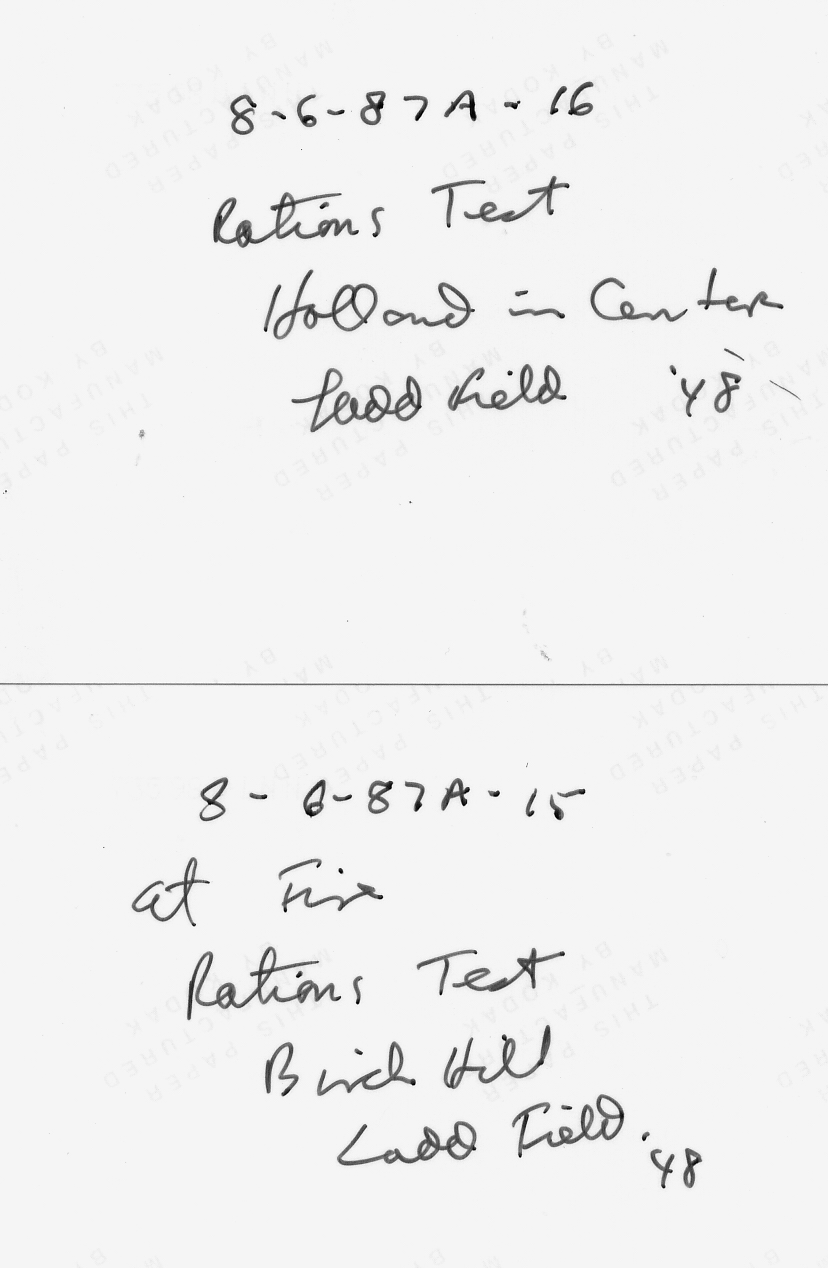 8-6-87A-16
Rations Test
Holland in Center
Ladd Field '48
8-6-87A-15
at Fire
Rations Test
Birch Hill
Ladd Field '48
THIS PAPER
MANUFACTURED
BY KODAK